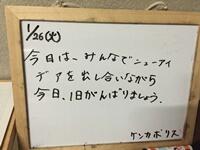 1/26(火)
今日は、みんなでニューアイ
デアを出し合いながら
今日、1日がんばりましょう。
ケンカボリス